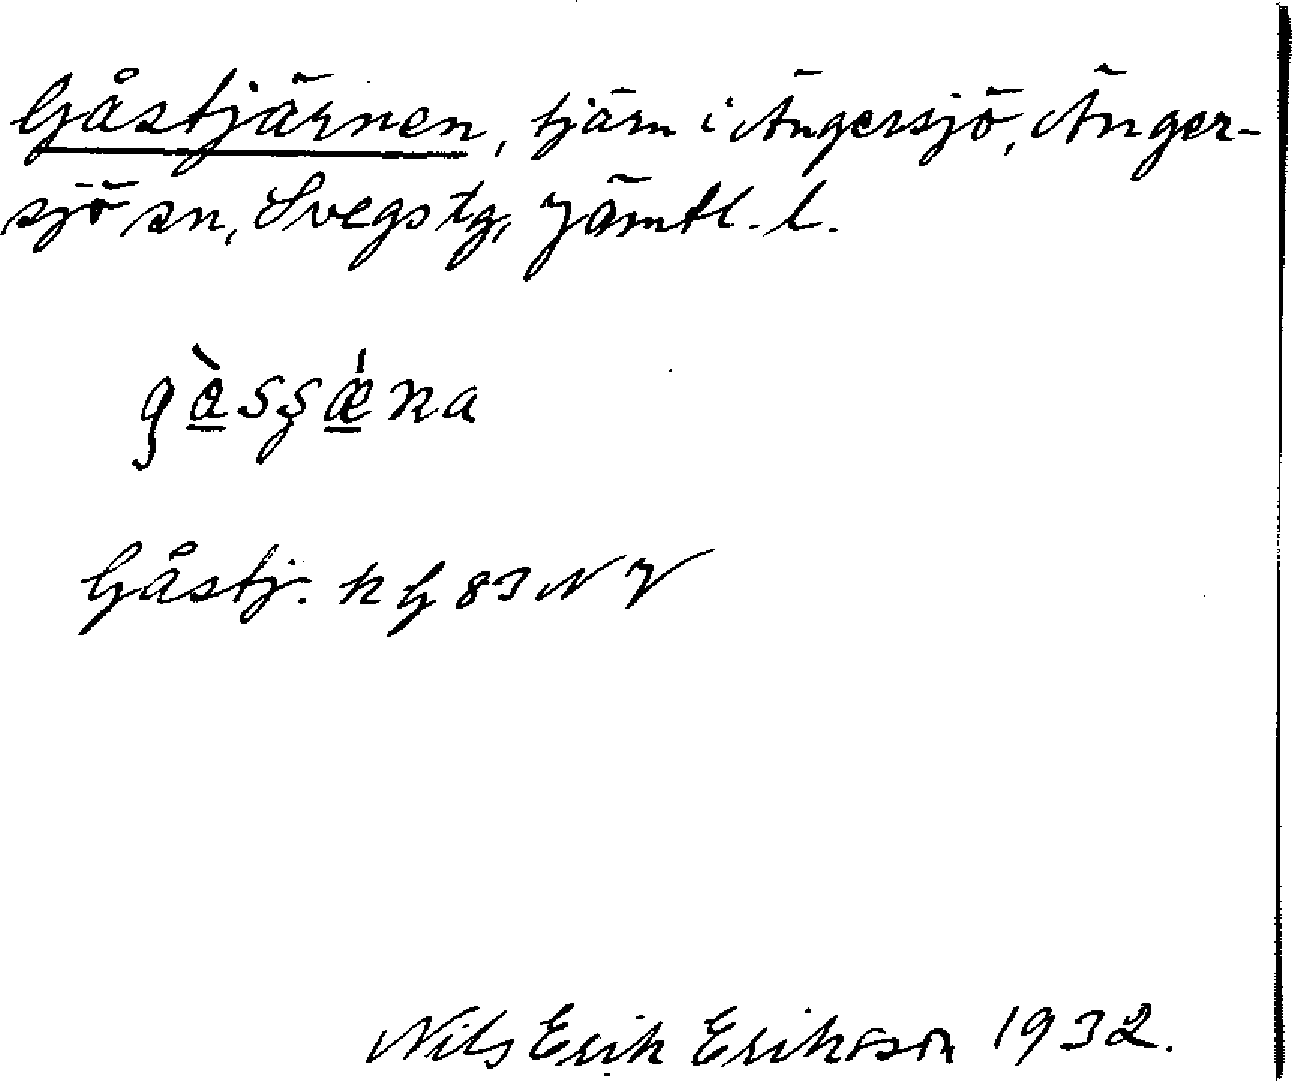 Gåstjärnen, tjärn i Ängersjö, Änger-
sjö sn, Svegs tg, Jämtl. l.
gàsʂǽna
Gåstj. k G 83 NV
Nils Erik Erikson 1932.